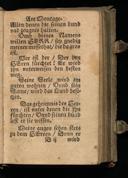 Am Montage.
Allen denen die seinen bund
und zeugnis halten.
Und deines Namens
willen HERR / sey gnedig
meiner missethat / die da gros
ist.
Wer ist der / Der den
HErrn fürchtet? Er wird
jn unterweisen den besten
weg.
Seine Seele wird im
guten wohnen / Und sein
Same wird das Land besi-
tzen.
Das geheimnis des HEr-
rn ist unter denen die jn
fürchten / Und seinen bund
lest er sie wissen.
Meine augen sehen stets
zu dem HErren / Denn er